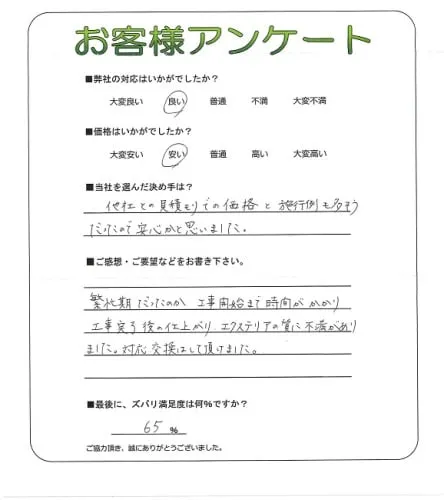 お客様アンケート
■弊社の対応はいかがでしたか?
大変良い 良い 普通 不満 大変不満
■価格はいかがでしたか?
大変安い 安い 普通 高い 大変高い
■当社を選んだ決め手は?
他社との見積もりでの価格と施行例も多そう
だったので安心かと思いました。
■ご感想・ご要望などをお書き下さい。
繁忙期だったのか 工事開始まで時間がかかり
工事完了後の仕上がり エクステリアの質に不満があり
ました。対応交換はして頂けました。
■最後に、ズバリ満足度は何%ですか?
65 %
ご協力頂き、誠にありがとうございました。